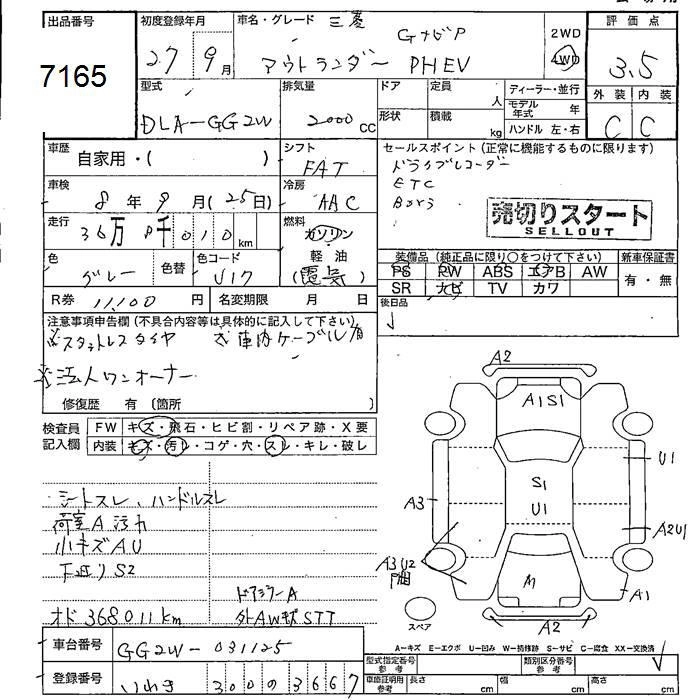 出品番号
7165
初度登録年月
27 9月
車名・グレード 三菱
GナビP
アウトランダー PHEV
2WD
4WD
評価点
3.5
外装 内装
C C
型式
DLA-GG2W
排気量
2000cc
ドア 定員 人
形状 積載 kg
ディーラー・並行
モデル年式 年
ハンドル 左・右
車歴
自家用・( )
シフト
FAT
車検
8年9月(25日)
冷房
AAC
走行
36万8千010km
燃料
ガソリン
軽油
(電気)
色
グレー
色替
色コード
U17
R券 11,100円
名変期限 月 日
セールスポイント(正常に機能するものに限ります)
ドライブレコーダー
ETC
売切りスタート
SELLOUT
装備品(純正品に限り○をつけて下さい)
PS PW ABS エアB AW
SR ナビ TV カワ
新車保証書
有・無
後日品
注意事項申告欄(不具合内容等は具体的に記入して下さい)
※スタットレスタイヤ ※車内ケーブル有
※法人ワンオーナー
修復歴 有〔箇所 〕
検査員
記入欄
FW キズ・飛石・ヒビ割・リペア跡・X要
内装 キズ・汚レ・コゲ・穴・スレ・キレ・破レ
シートスレ、ハンドルスレ
荷室A汚れ
小キズAU
下廻りS2
ドアミラーA
オド368011km
外AWキズSTT
A2
A1S1
U1
S1
U1
A3
A2U1
A3U2
M
A1
A2
スペア
A-キズ E-エクボ U-凹み W-補修跡 S-サビ C-腐食 XX-交換済
車台番号
GG2W-031125
登録番号
いわき 300 の 3667
型式指定番号 参考
類別区分番号 参考
車庫証明用 参考
長さ cm 幅 cm 高さ cm